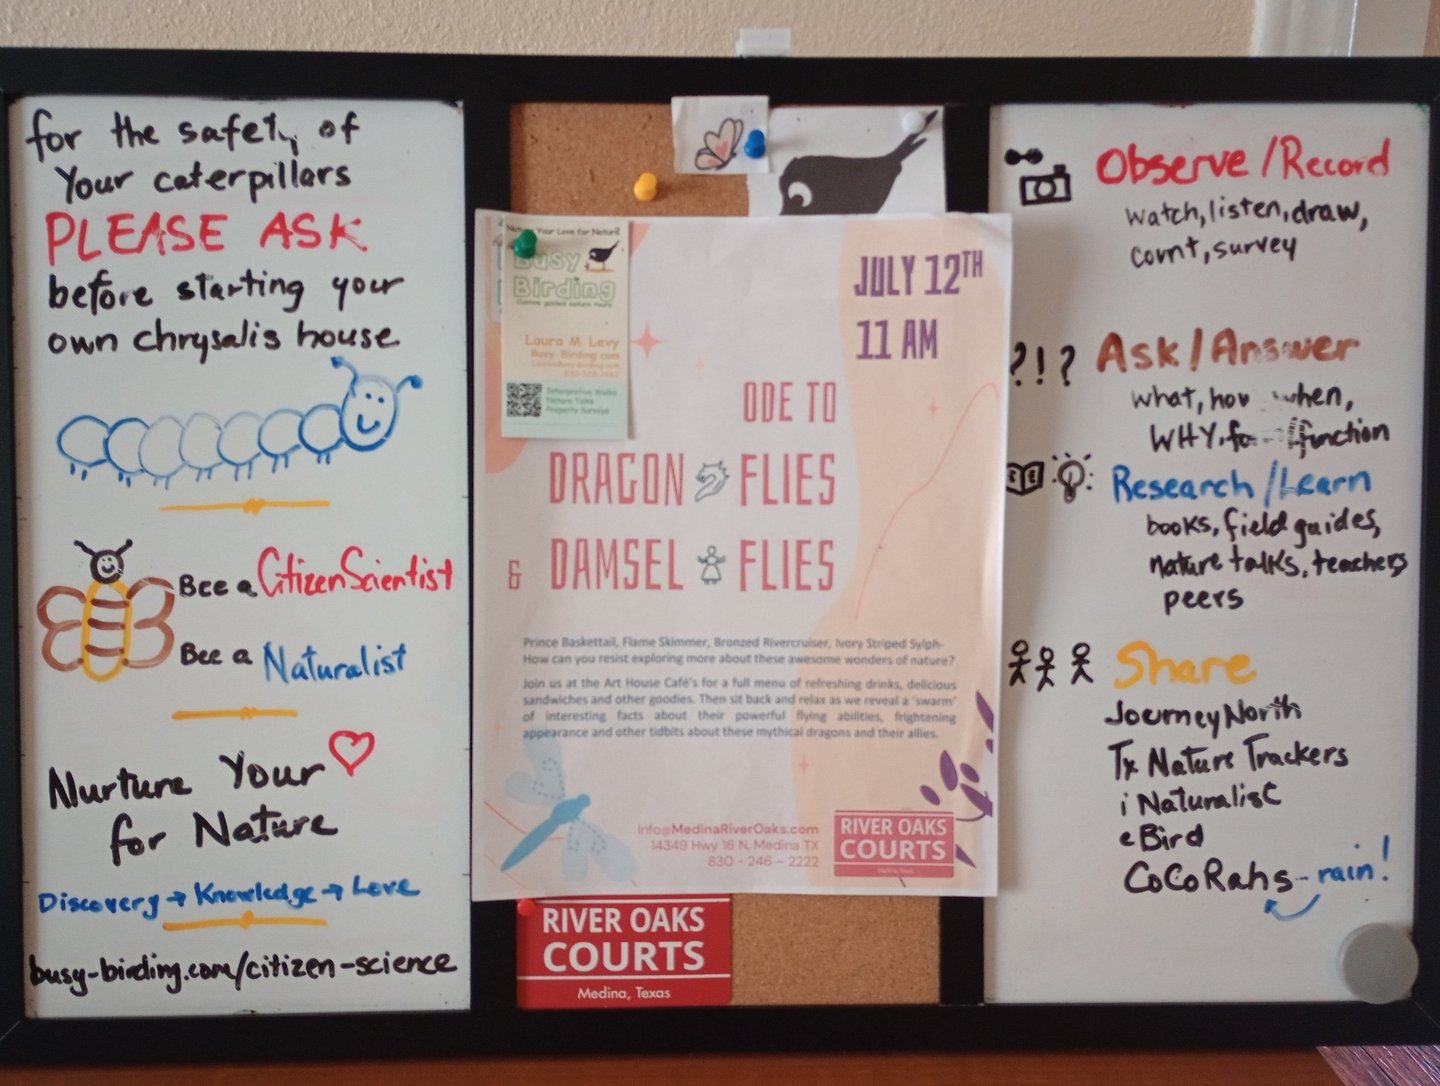 for the safety of
Your caterpillars
PLEASE ASK
before starting your
own chrysalis house
Bee a Citizen Scientist
Bee a Naturalist
Nurture Your
for Nature
Discovery → Knowledge → Love
busy-birding.com/citizen-science
Your Love for Nature
Busy
Birding
Custom guided nature tours
Laura M Levy
Busy-Birding.com
Interpretive Walks
Nature Talks
Property Surveys
JULY 12TH
11 AM
ODE TO
DRAGON FLIES
& DAMSEL FLIES
Prince Baskettail, Flame Skimmer, Bronzed Rivercruiser, Ivory Striped Sylph-
How can you resist exploring more about these awesome wonders of nature?
Join us at the Art House Café's for a full menu of refreshing drinks, delicious
sandwiches and other goodies. Then sit back and relax as we reveal a 'swarm'
of interesting facts about their powerful flying abilities, frightening
appearance and other tidbits about these mythical dragons and their allies.
Info@MedinaRiverOaks.com
14349 Hwy 16 N, Medina TX
830 - 246 - 2222
RIVER OAKS
COURTS
RIVER OAKS
COURTS
Medina, Texas
Observe/Record
watch, listen, draw,
count, survey
?!? Ask/Answer
what, how when,
WHY, function
Research/Learn
books, field guides,
nature talks, teachers
peers
Share
Journey North
Tx Nature Trackers
iNaturalist
eBird
CoCoRahs - rain!